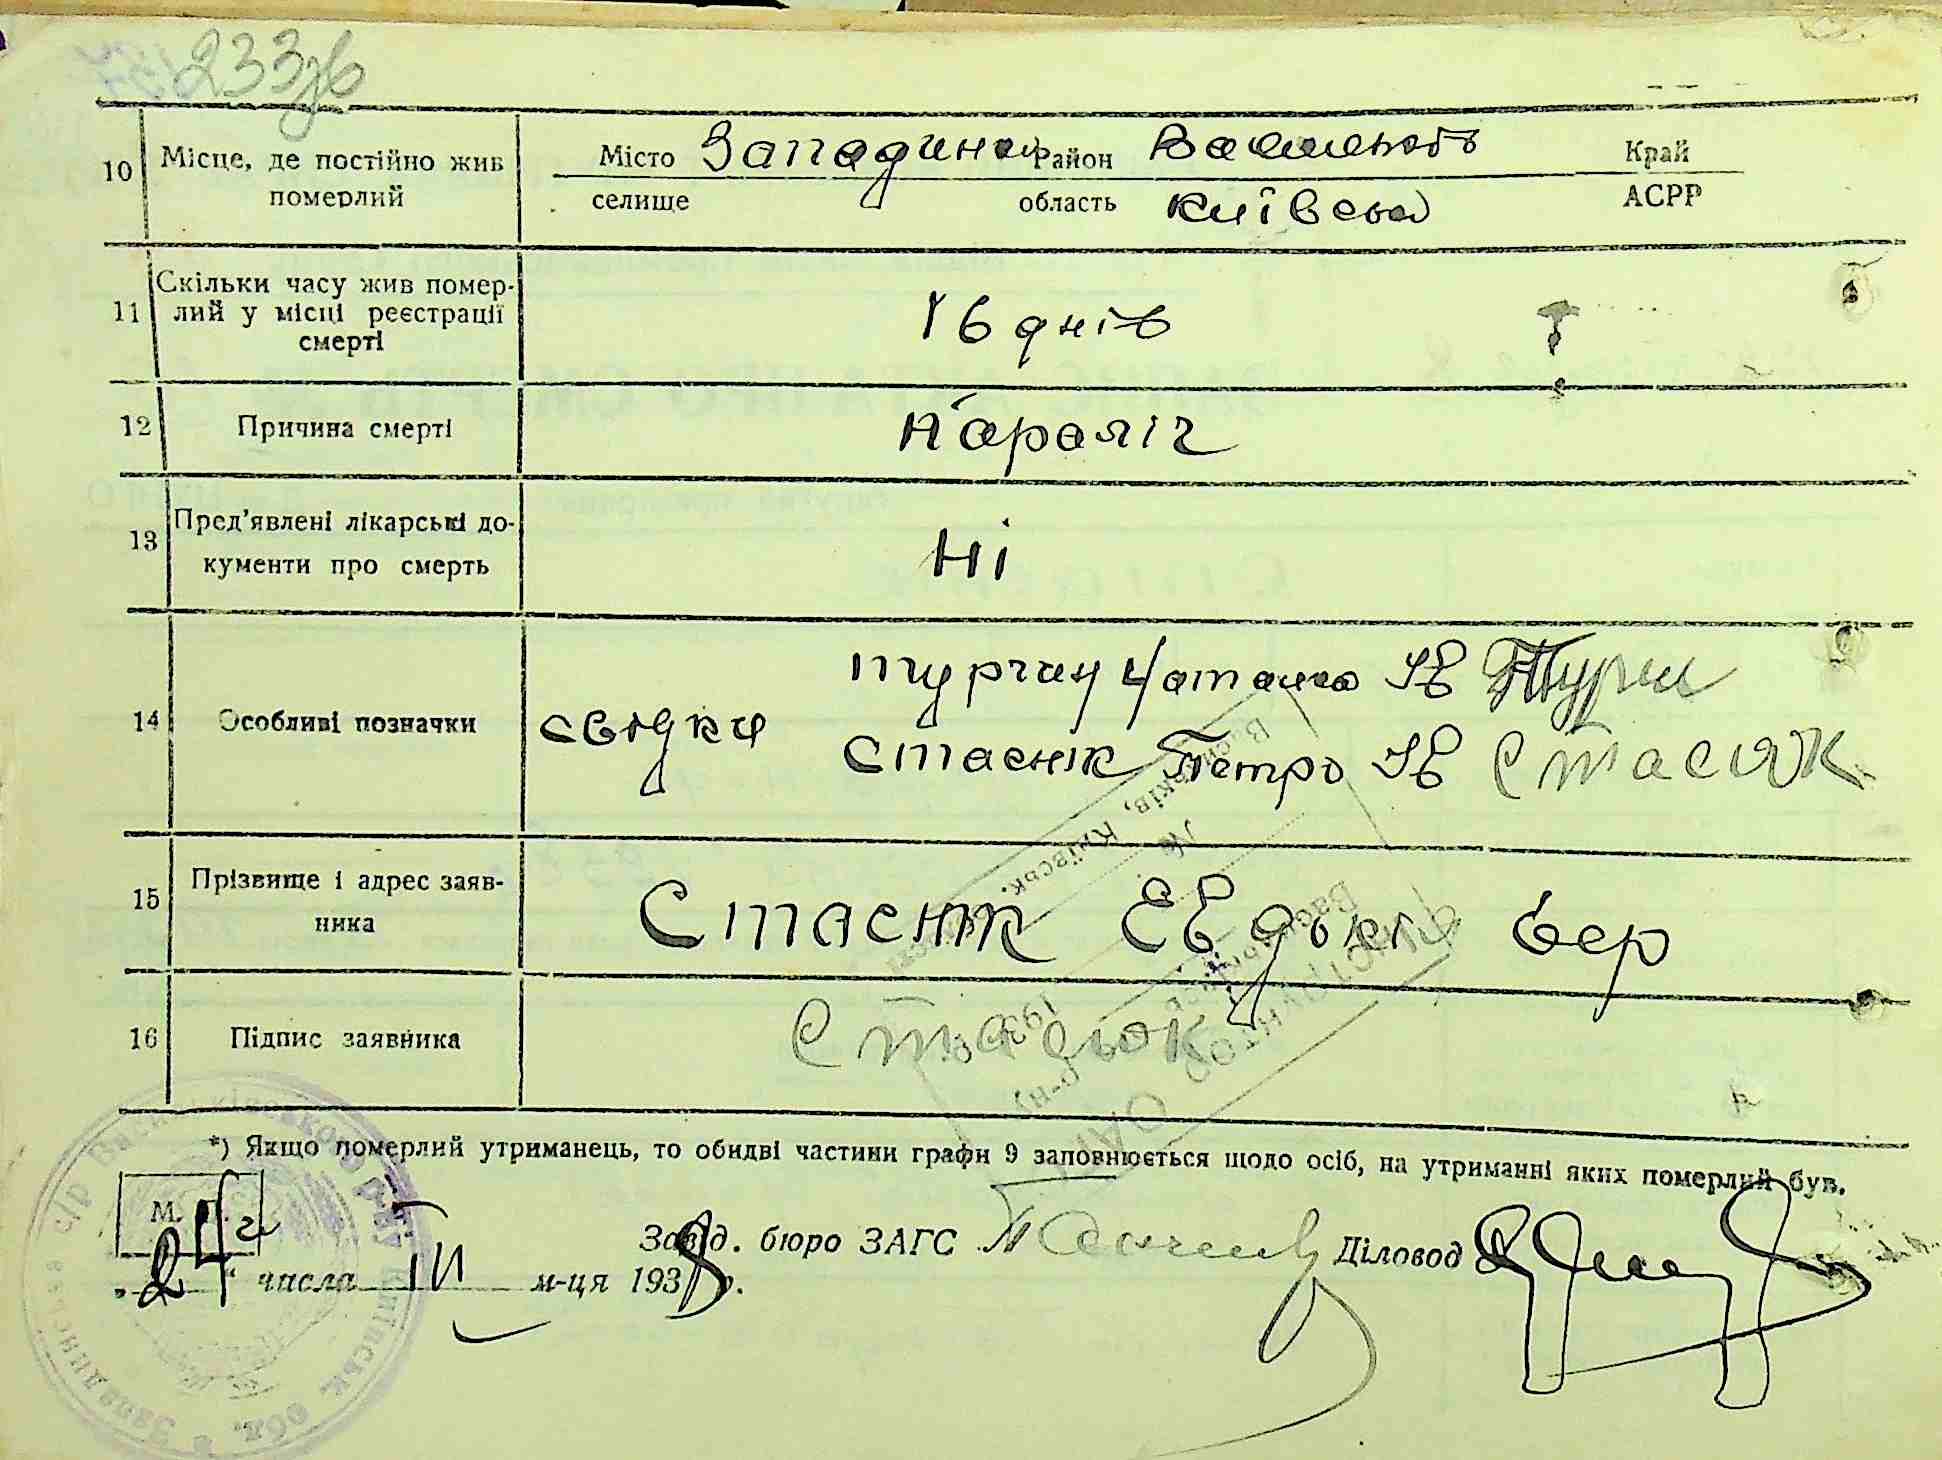 233зв
10 Місце, де постійно жив померлий Місто Западинка Район Васильків Край
селище область Київська АСРР
11 Скільки часу жив помер-
лий у місці реєстрації
смерті
16 днів
12 Причина смерті Параліч
13 Пред'явлені лікарські до-
кументи про смерть
Ні
14 Особливі позначки свідки
Турчин Наталка Ів Турчи
Стасюк Петро Ів Стасюк
15 Прізвище і адрес заяв-
ника
Стасюк Евдокія
16 Підпис заявника Стасюк
*) Якщо померлий утриманець, то обидві частини графи 9 заповнюється щодо осіб, на утриманні яких померлий був.
М. П.
„24“ числа III м-ця 1938 р. Завід. бюро ЗАГС Діловод
Васильків, Київськ.
№
193